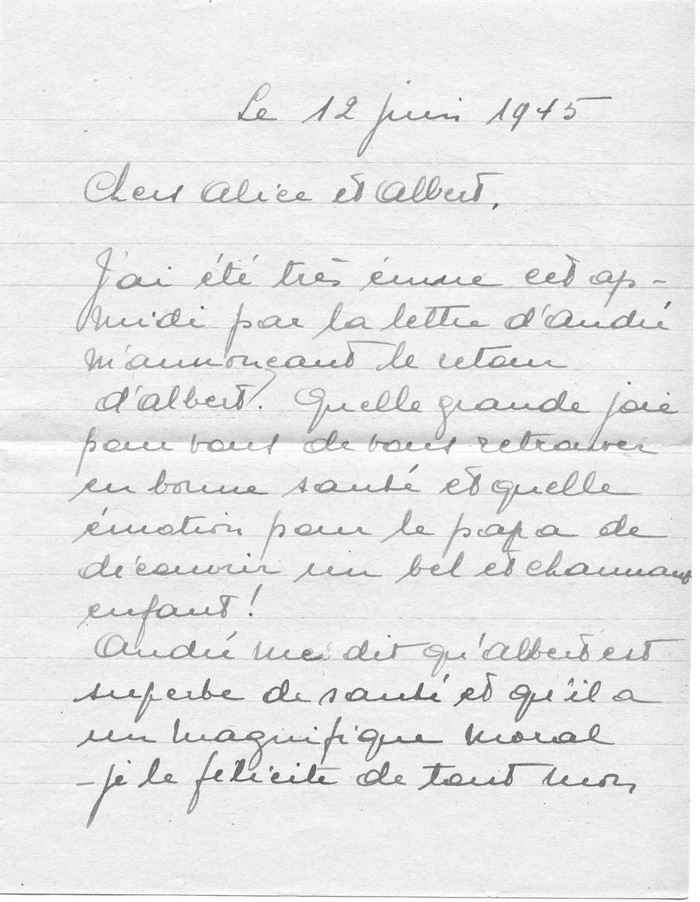 Le 12 juin 1945
Chers Alice et Albert,
J'ai été très émue cet ap-
midi par la lettre d'André
m'annonçant le retour
d'Albert! Quelle grande joie
pour vous de vous retrouver
en bonne santé et quelle
émotion pour le papa de
découvrir un bel et charmant
enfant!
André me dit qu'Albert est
superbe de santé et qu'il a
un magnifique moral
- je le félicite de tout mon